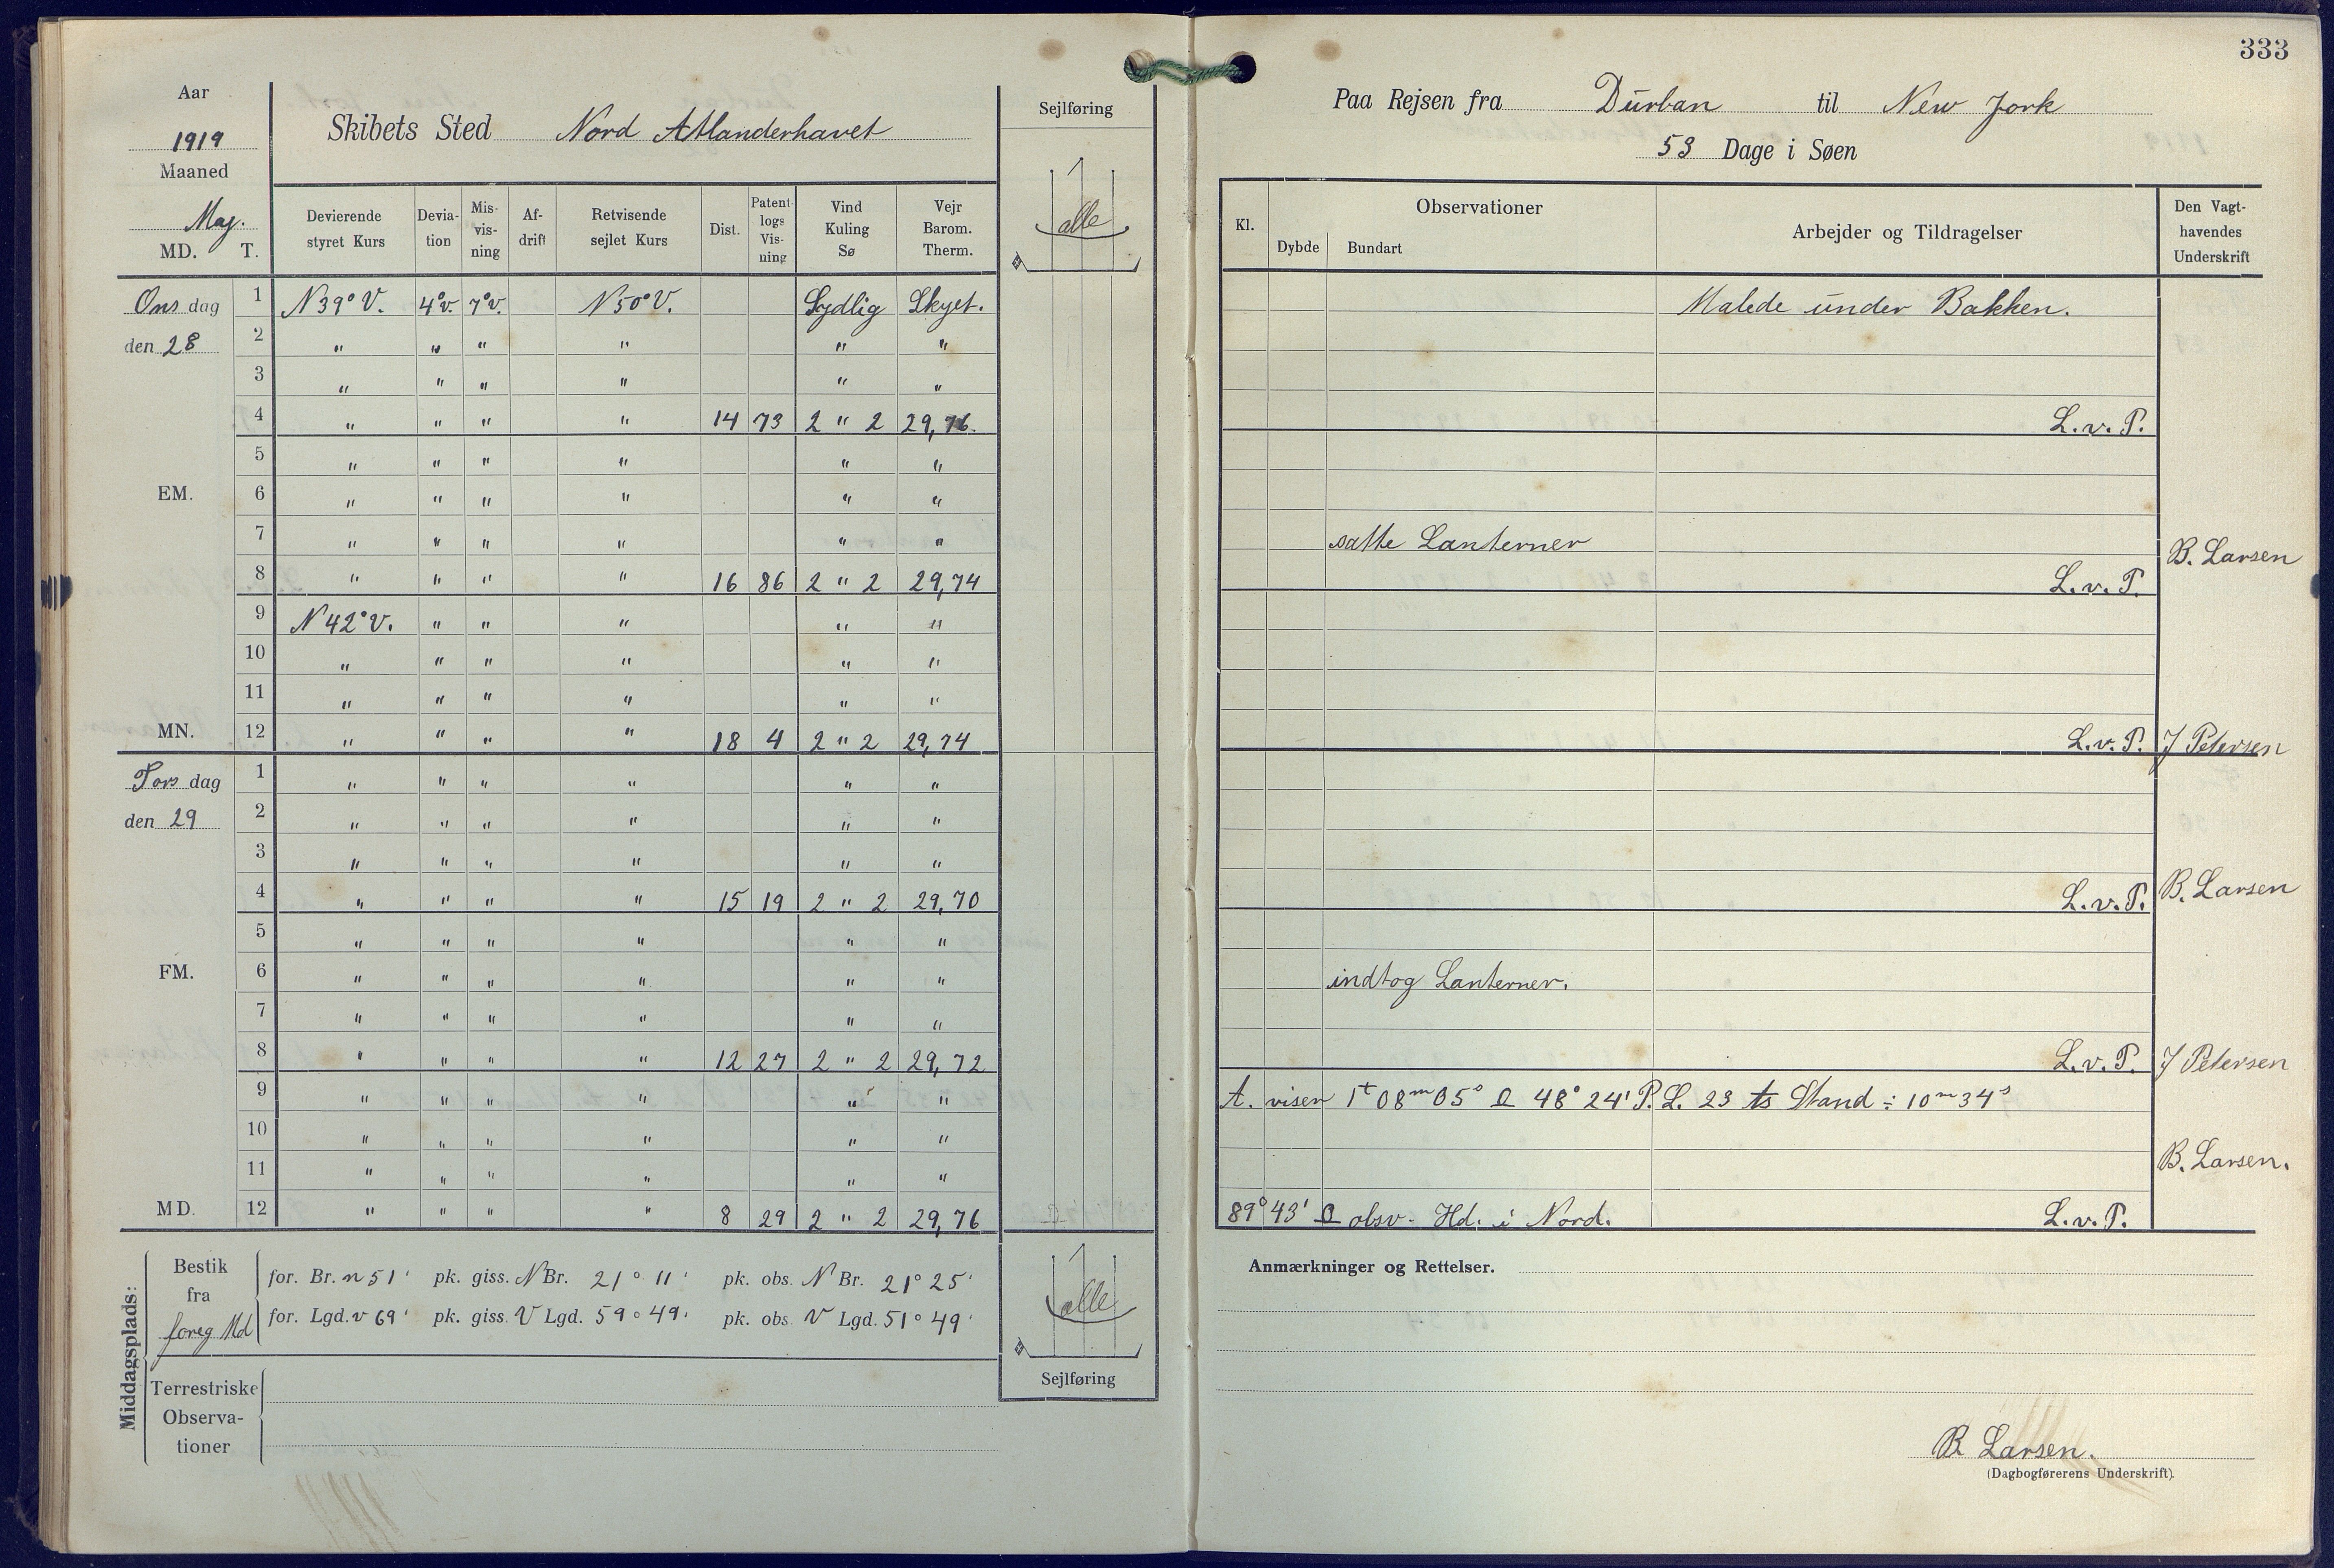 333
Aar
1919
Maaned
Maj.
MD. T.
Skibets Sted Nord Atlanderhavet
Sejlføring
alle
Paa Rejsen fra Durban til New Jork
53 Dage i Søen
Devierende styret Kurs | Devia-tion | Mis-vis-ning | Af-drift | Retvisende sejlet Kurs | Dist. | Patent-logs Vis-ning | Vind Kuling Sø | Vejr Barom. Therm.
Kl. | Observationer | Dybde | Bundart | Arbejder og Tildragelser | Den Vagt-havendes Underskrift
Onsdag 1 N39°V. 4°v. 7°v. N50°V. Sydlig Skyet. Malede under Bakken.
den 28 2 " " " " " "
3 " " " " " "
4 " " " " 14 73 2 " 2 29,76. L.v.P.
5 " " " " " "
EM. 6 " " " " " "
7 " " " " " " satte Lanterner B. Larsen
8 " " " " 16 86 2 " 2 29,74 L.v.P.
9 N42°V. " " " " "
10 " " " " " "
11 " " " " " "
MN. 12 " " " " 18 4 2 " 2 29,74 L.v.P. J Petersen
Torsdag 1 " " " " " "
den 29 2 " " " " " "
3 " " " " " "
4 " " " " 15 19 2 " 2 29,70 L.v.P. B. Larsen
5 " " " " " "
FM. 6 " " " " " " indtog Lanterner.
7 " " " " " "
8 " " " " 12 27 2 " 2 29,72 L.v.P. J Petersen
9 " " " " " " A. viser 1t 08m 05s 48° 24' P.L. 23 ts Stand ÷ 10m 34s
10 " " " " " "
11 " " " " " " B. Larsen.
MD. 12 " " " " 8 29 2 " 2 29,76 89° 43' obsv. Hd. i Nord. L.v.P.
Middagsplads:
Bestik fra foreg Md
for. Br. n 51' pk. giss. N Br. 21° 11' pk. obs. N Br. 21° 25'
for. Lgd. v 69' pk. giss. V Lgd. 59° 49' pk. obs. V Lgd. 51° 49'
Terrestriske Observa-tioner
alle
Sejlføring
Anmærkninger og Rettelser.
B. Larsen.
(Dagbogførerens Underskrift).